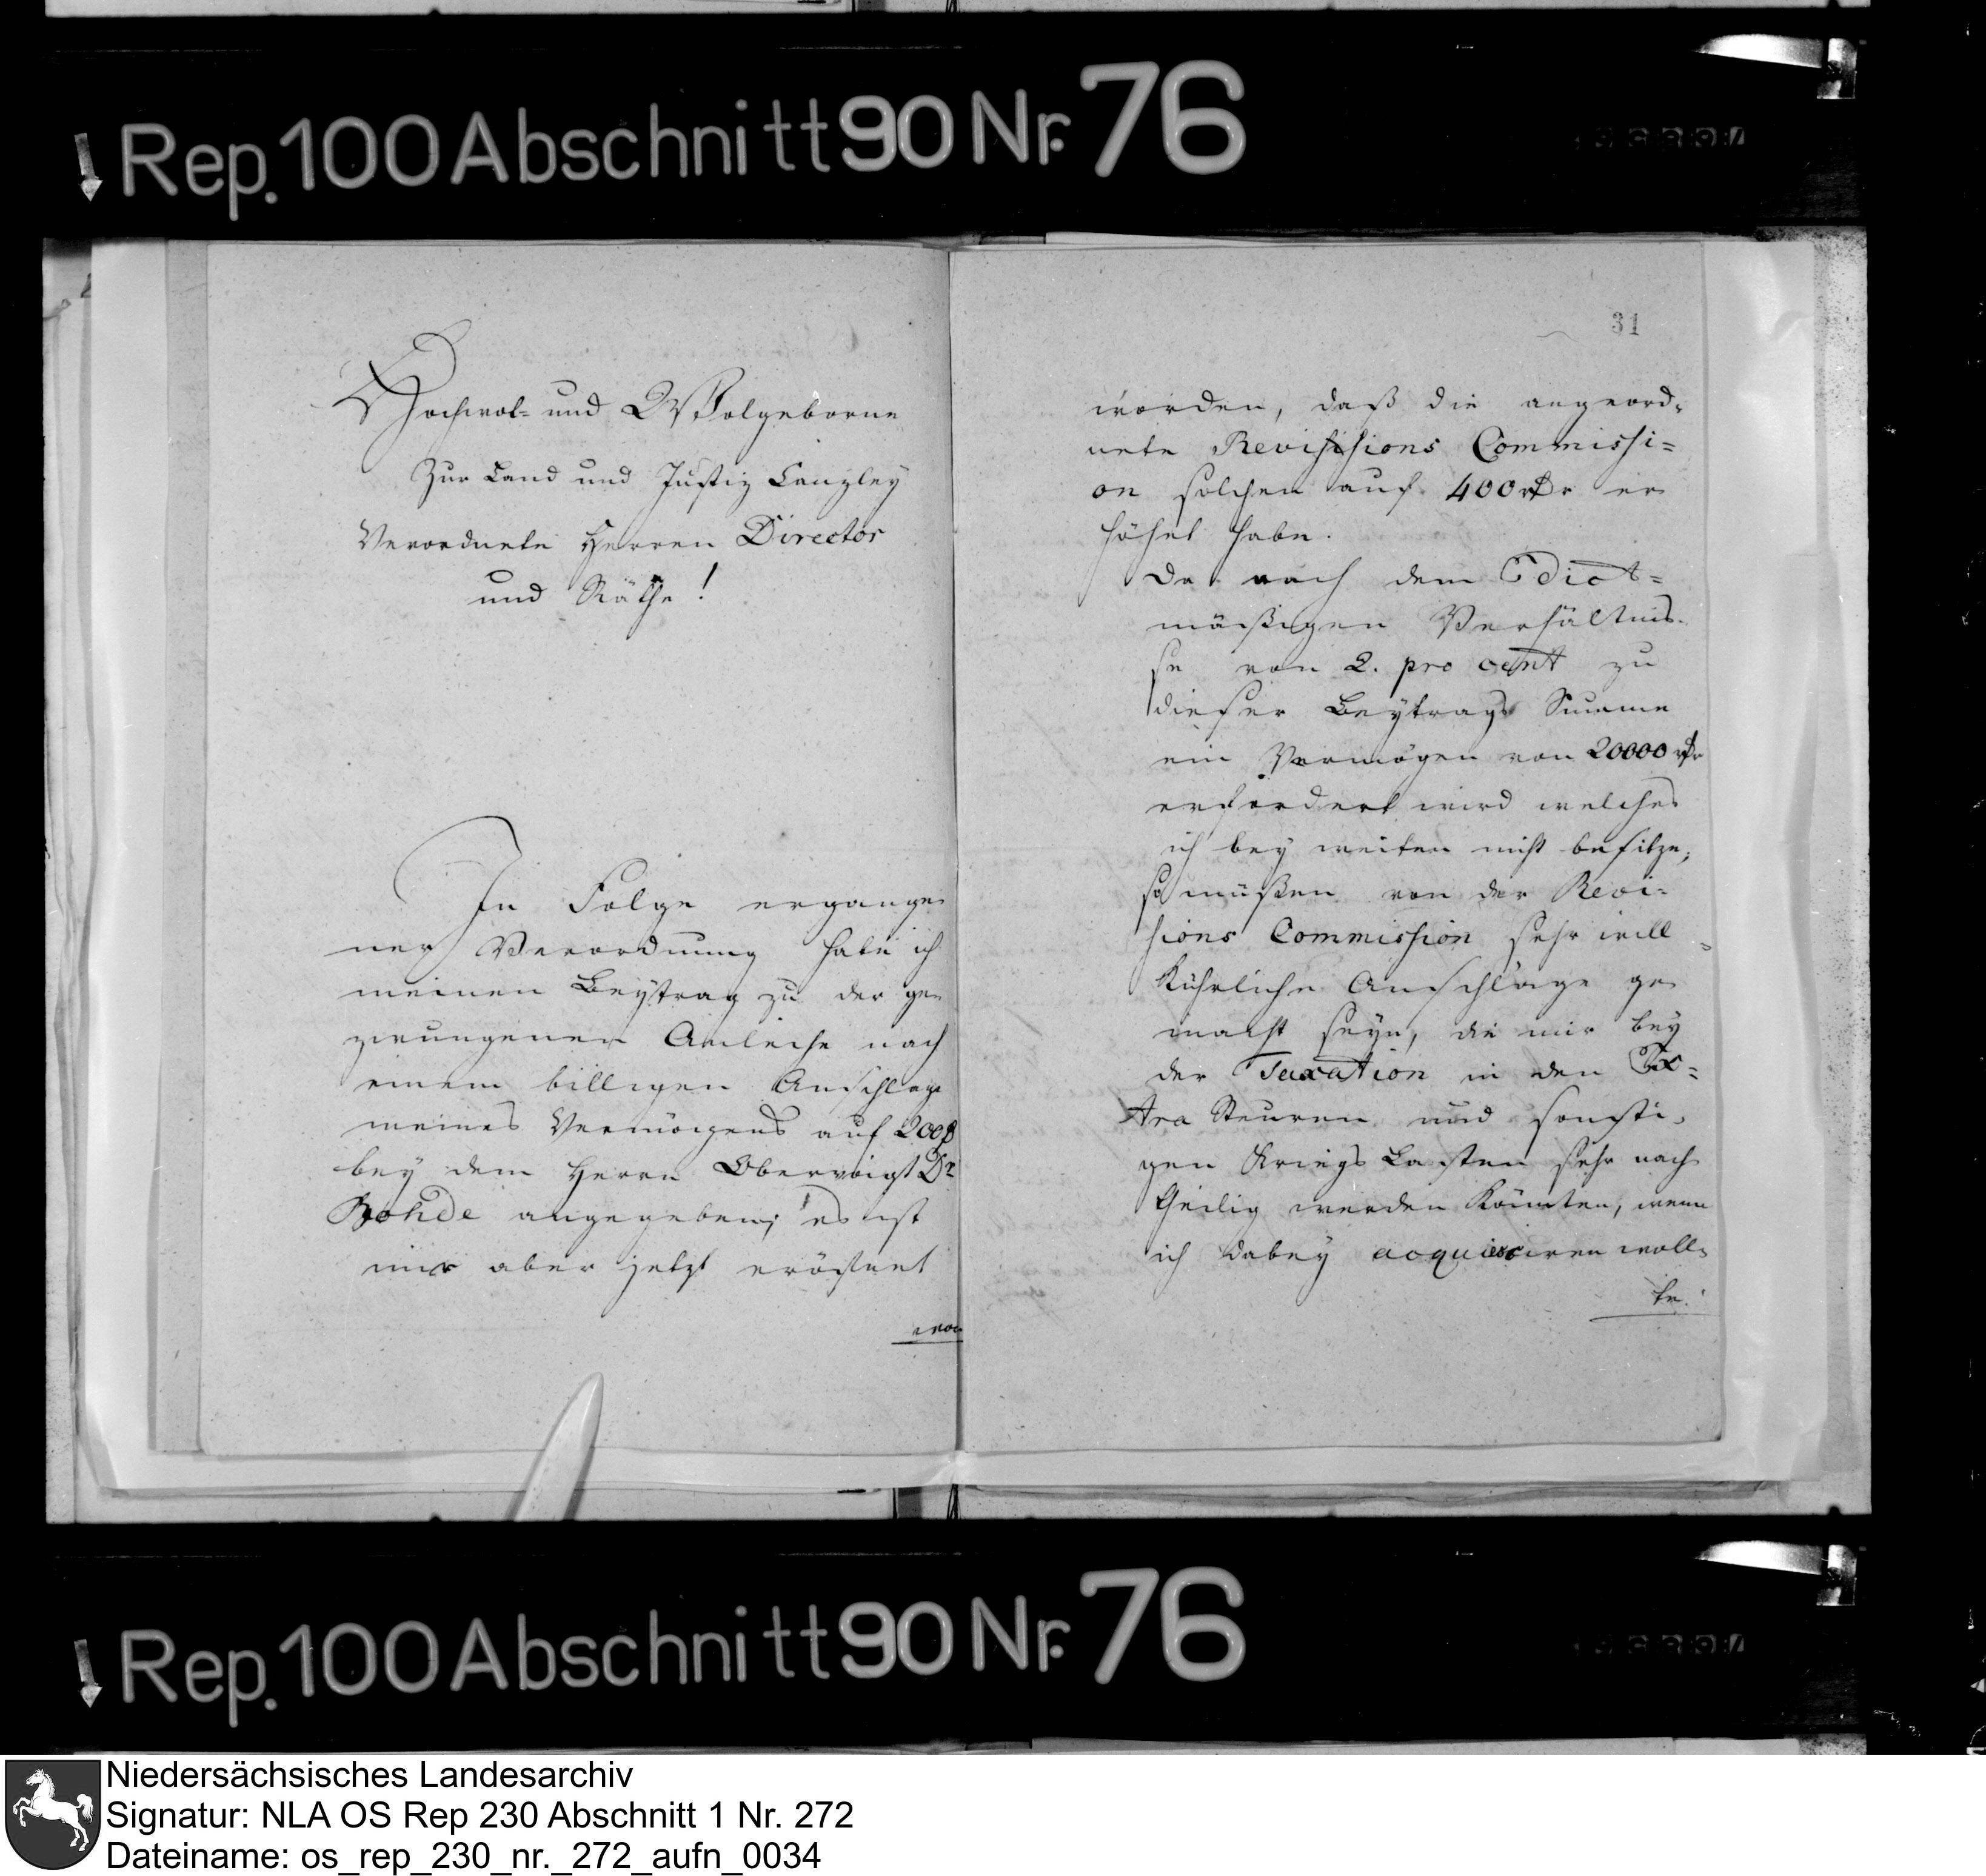 Rep. 100 Abschnitt 90 Nr. 76
Hochwol- und Wolgeborne
Zur Land und Justiz Canzley
Verordnete Herren Director
und Räthe!
In Folge ergange-
ner Verordnung habe ich
meinen Beytrag zu der ge-
zwungenen Anleihe nach
einem billigen Anschlage
meines Vermögens auf 200
bey dem Herrn Obervoigt Dr
Rohde angegeben; es ist
mir aber jetzt eröfnet
wor
31
worden, daß die angeord-
nete Revisions Commissi-
on solchen auf 400 rthlr er
höhet habe.
Da nach dem Edict-
mäßigen Verhältnis-
se von 2. pro cent zu
dieser Beytrags Summe
ein Vermögen von 20000 rthlr
erfordert wird welches
ich bey weiten nicht besitze;
so müßen von der Revi-
sions Commission sehr will-
kührliche Anschläge ge
macht seyn, die mir bey
der Taxation in den Ex-
tra Steuren und sonsti-
gen Kriegs Lasten sehr nach
theilig werden könnten, wenn
ich dabey acquiesciren woll-
te.
Rep. 100 Abschnitt 90 Nr. 76
Niedersächsisches Landesarchiv
Signatur: NLA OS Rep 230 Abschnitt 1 Nr. 272
Dateiname: os_rep_230_nr._272_aufn_0034